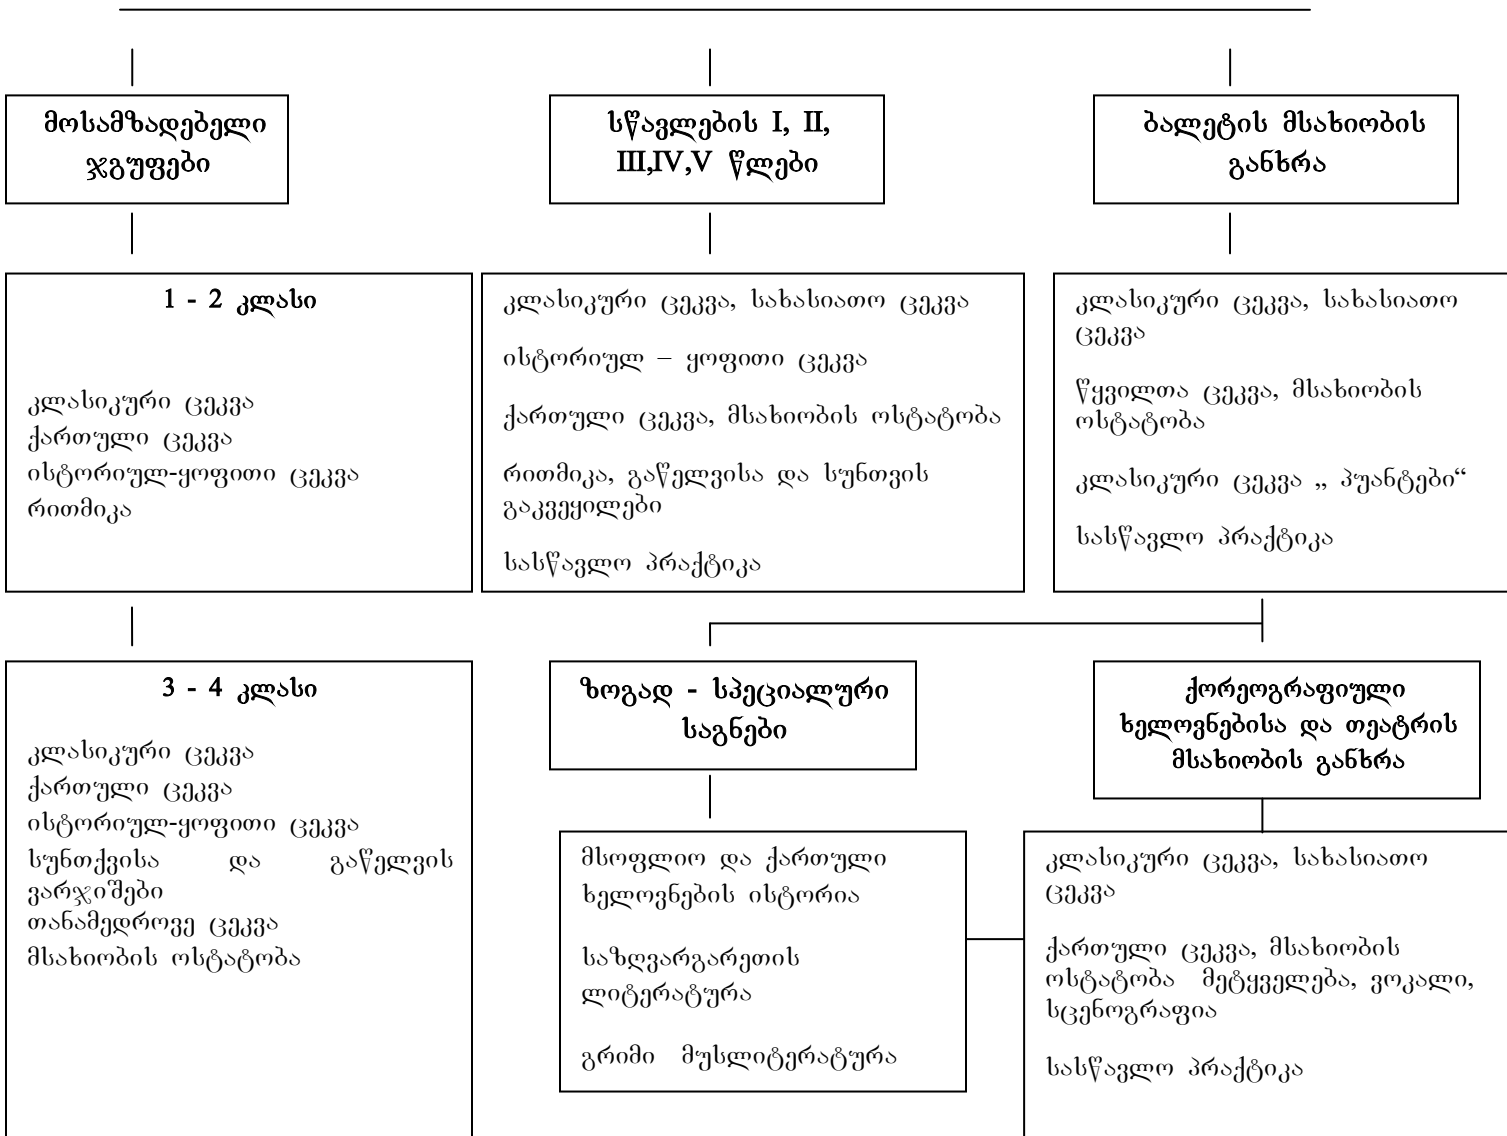 მოსამზადებელი
ჯგუფები
სწავლების I, II,
III,IV,V წლები
ბალეტის მსახიობის
განხრა
1 - 2 კლასი
კლასიკური ცეკვა
ქართული ცეკვა
ისტორიულ-ყოფითი ცეკვა
რითმიკა
კლასიკური ცეკვა, სახასიათო ცეკვა
ისტორიულ – ყოფითი ცეკვა
ქართული ცეკვა, მსახიობის ოსტატობა
რითმიკა, გაწელვისა და სუნთვის
გაკვეყილები
სასწავლო პრაქტიკა
კლასიკური ცეკვა, სახასიათო
ცეკვა
წყვილთა ცეკვა, მსახიობის
ოსტატობა
კლასიკური ცეკვა „ პუანტები“
სასწავლო პრაქტიკა
3 - 4 კლასი
კლასიკური ცეკვა
ქართული ცეკვა
ისტორიულ-ყოფითი ცეკვა
სუნთქვისა და გაწელვის
ვარჯიშები
თანამედროვე ცეკვა
მსახიობის ოსტატობა
ზოგად - სპეციალური
საგნები
მსოფლიო და ქართული
ხელოვნების ისტორია
საზღვარგარეთის
ლიტერატურა
გრიმი მუსლიტერატურა
ქორეოგრაფიული
ხელოვნებისა და თეატრის
მსახიობის განხრა
კლასიკური ცეკვა, სახასიათო
ცეკვა
ქართული ცეკვა, მსახიობის
ოსტატობა მეტყველება, ვოკალი,
სცენოგრაფია
სასწავლო პრაქტიკა